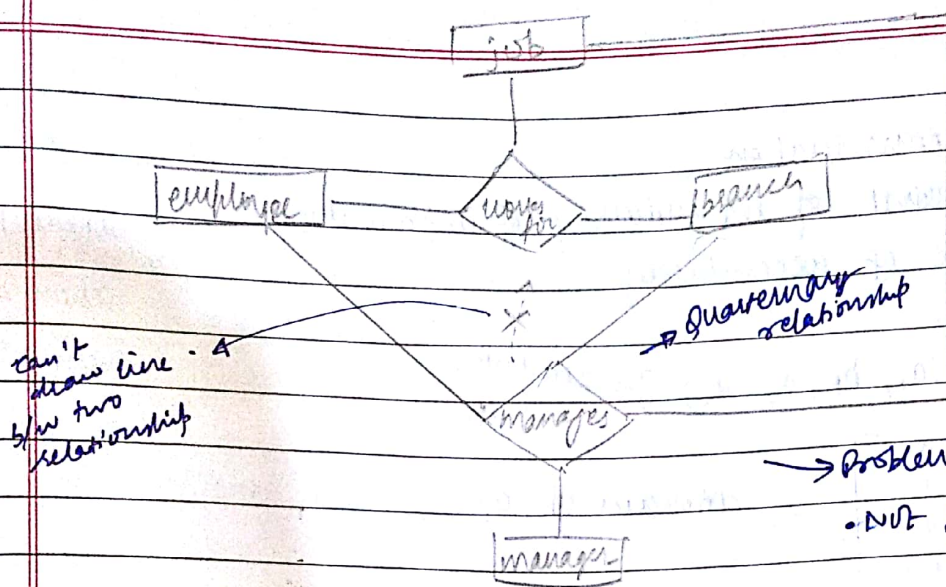 job
employee
works
for
branch
Quaternary
relationship
can't
draw line
b/w two
relationship
manages
Problem
• Not
manager